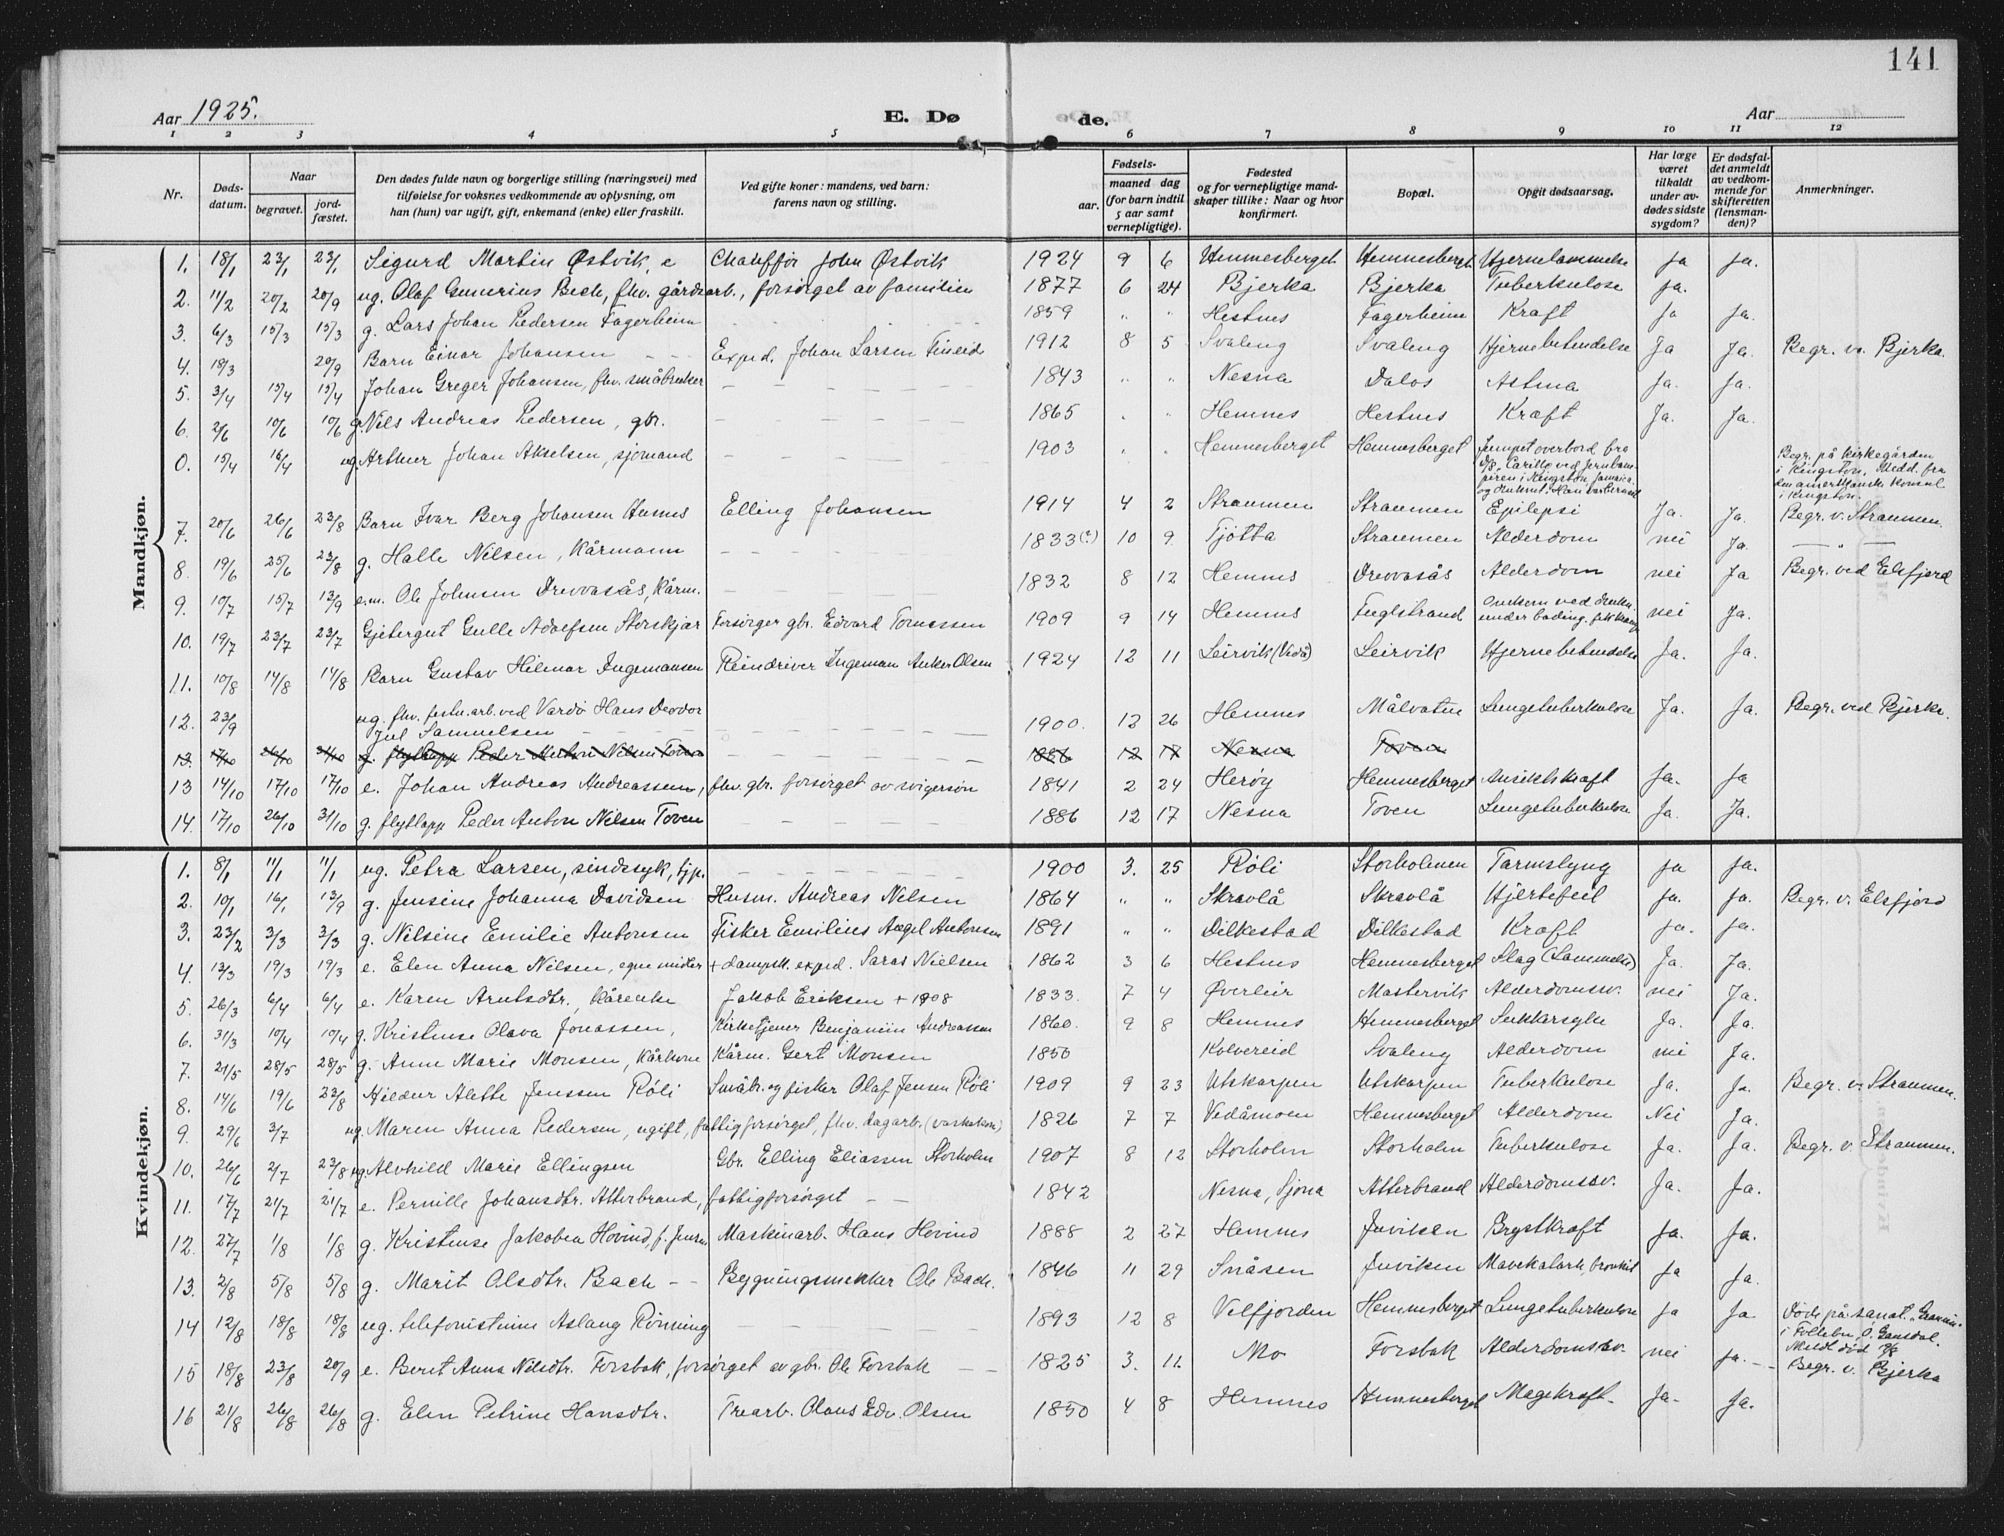 141
Aar 1925.
E. Dø
de.
Aar
1 2 3 4 5 6 7 8 9 10 11 12
Nr.
Døds-
datum.
Naar
begravet.
jord-
fæstet.
Den dødes fulde navn og borgerlige stilling (næringsvei) med
tilføielse for voksnes vedkommende av oplysning, om
han (hun) var ugift, gift, enkemand (enke) eller fraskilt.
Ved gifte koner: mandens, ved barn:
farens navn og stilling.
Fødsels-
aar.
maaned dag
(for barn indtil
5 aar samt
vernepligtige).
Fødested
og for vernepligtige mand-
skaper tillike: Naar og hvor
konfirmert.
Bopæl.
Opgit dødsaarsag.
Har læge
været
tilkaldt
under av-
dødes sidste
sygdom?
Er dødsfal-
det anmeldt
av vedkom-
mende for
skifteretten
(lensman-
den)?
Anmerkninger.
Mandkjøn.
1. 18/1 23/1 23/1 Sigurd Martin Østvik, e Chauffør John Østvik 1924 9 6 Hemnesberget Hemnesberget Hjernelammelse ja ja.
2. 11/2 20/2 20/9 ug. Olaf Gunerius Bech, fhv. gårdsarb., forsørget av familien 1877 6 24 Bjerka Bjerka Tuberkulose ja.
3. 6/3 15/3 15/3 g. Lars Johan Pedersen Fagerheim 1859 " " Hestnes Fagerheim Kræft ja ja.
4. 18/3 20/9 Barn Einar Johansen Exped. Johan Larsen Fineid 1912 8 5 Svaleng Svaleng Hjernebetendelse Ja Ja. Begr. v. Bjerka.
5. 3/4 15/4 15/4 Johan Greger Johansen, fhv. småbruker 1843 " " Nesna Dalos Astma Ja. Ja.
6. 2/6 10/6 10/6 g. Nils Andreas Pedersen, gbr. 1865 " " Hemnes Hestnes Kræft Ja. Ja.
0. 15/4 16/4 ug. Arthur Johan Akselsen, sjømand 1903 " " Hemnesberget Hemnesberget Jumpet overbord fra
D/S "Carillo" ved
i Kingston, Jamaica
og druknet.
Begr. på kirkegården
i Kingston, Medd. fra
den amerikanske konsul
i Kingston.
7. 20/6 26/6 23/8 Barn Ivar Berg Johansen Husnes Elling Johansen 1914 4 2 Straumen Straumen Epilepsi Ja. Ja. Begr. v. Straumen.
8. 19/6 25/6 23/8 g. Halle Nilsen, Kårmann 1833(?) 10 9 Tjøtta Straumen Alderdom nei Ja — " —
9. 10/7 15/7 13/9 e.m. Ole Johnsen Drevvasås, Kårm. 1832 8 12 Hemnes Drevvasås Alderdom nei Ja Begr. ved Elsfjord
10. 19/7 23/7 23/7 Gjetergut Gulle Adolfsen Storskjær Forsørger gbr. Edvard Tomassen 1909 9 14 Hemnes Fuglstrand Omkom ved drukn.
under bading. fik krampe nei Ja.
11. 10/8 14/8 14/8 Barn Gustav Hilmar Ingemansen Reindriver Ingeman Anker Olsen 1924 12 11 Leirvik (Vedå) Leirvik Hjernebetendelse Ja. Ja.
12. 23/9 ug. fhv. festn.arb. ved Vardø Hans Deodor
Jul Samuelsen 1900. 12 26 Hemnes Målvatn Lungetuberkulose Ja. Ja. Begr. ved Bjerka.
13. 17/10 26/10 31/10 g. flytlapp Peder Anton Nilsen Toven 1886 12 17 Nesna Toven
13 14/10 17/10 17/10 e. Johan Andreas Andreassen, fhv. gbr. forsørget av svigersøn 1841 2 24 Herøy Hemnesberget Ansiktskræft Ja. Ja
14. 17/10 26/10 31/10 g. flytlapp Peder Anton Nilsen Toven 1886 12 17 Nesna Toven Lungetuberkulose Ja. Ja.
Kvindekjøn.
1. 8/1 11/1 11/1 ug. Petra Larsen, sindssyk, tjp. 1900 3. 25 Røli Storholmen Tarmslyng ja ja.
2. 10/1 16/1 13/9 g. Jensine Johanna Davidsen Husm. Andreas Nilsen 1864 " " Skravlå Skravlå Hjertefeil ja. ja. Begr. v. Elsfjord
3. 23/2 3/3 3/3 g. Nilsine Emilie Antonsen Fisker Emilius Angel Antonsen 1891 " " Dilkestad Dilkestad Kræft ja. ja.
4. 13/3 19/3 19/3 e. Elen Anna Nilsen, egne midler + dampsk. exped. Saras Nielsen 1862 3 6 Hestnes Hemnesberget Slag (Lammelse) Ja. Ja.
5. 26/3 6/4 6/4 e. Karen Arntsdtr., kårenke Jakob Eriksen + 1908 1833. 7 4 Øverleir Mastervik Alderdomssv. nei Ja.
6. 31/3 10/4 10/4 g. Kristense Olava Jonassen, Kirketjener Benjamin Andreassen 1860. 9 8 Hemnes Hemnesberget Sukkersyke Ja. Ja.
7. 21/5 28/5 28/5 g. Anne Marie Monsen, Kårkone Kårm. Gert Monsen 1850 Kolvereid Svaleng Alderdom nei Ja.
8. 14/6 19/6 23/8 Hildur Alette Jenssen Røli Småbr. og fisker Olaf Jensen Røli 1909 9 23 Utskarpen Utskarpen Tuberkulose Ja. Ja. Begr. v. Straumen.
9. 29/6 3/7 ug. Maren Anna Pedersen, ugift, fattigforsørget, fhv. dagarb. (vaskekone) 1826 7 7 Vedåmoen Hemnesberget Alderdom Nei Ja.
10. 26/6 2/7 23/8 ug. Alvhild Marie Ellingsen Gbr. Elling Eliassen Storholm 1907 8 12 Storholm Storholm Tuberkulose Ja. Ja. Begr. v. Straumen.
11. 17/7 21/7 21/7 e. Pernille Johansdtr. Atterbrand, fattigforsørget 1842 Nesna, Sjona Atterbrand Alderdomssv. Ja. Ja.
12. 27/7 1/8 1/8 g. Kristense Jakobea Hovind, f. Jensen Maskinarb. Hans Hovind 1888 2 27 Hemnes Juviken Brystkræft Ja. Ja.
13. 2/8 5/8 5/8 g. Marit Olsdtr. Bach Bygningssnekker Ole Bach. 1846 11 29 Snåsen Juviken Mavekatarh, bronkit Ja Ja.
14 12/8 18/8 18/8 ug. telefonistinne Aslaug Rønning 1893 12 8 Velfjorden Hemnesberget Lungetuberkulose ja Ja Døde på sanat.
i Follebu, Ø. Gausdal.
15 18/8 23/8 20/9 e. Berit Anna Nilsdtr. Forsbak, forsørget av gbr. Ole Forsbak 1825 3. 11. Mo Forsbak Alderdomssv. nei ja. Begr. v. Bjerka
16 21/8 26/8 26/8 g. Elen Petrine Hansdtr. Trearb. Olaus Edv. Olsen 1850 4 8 Hemnes Hemnesberget Magekræft. Ja. Ja.